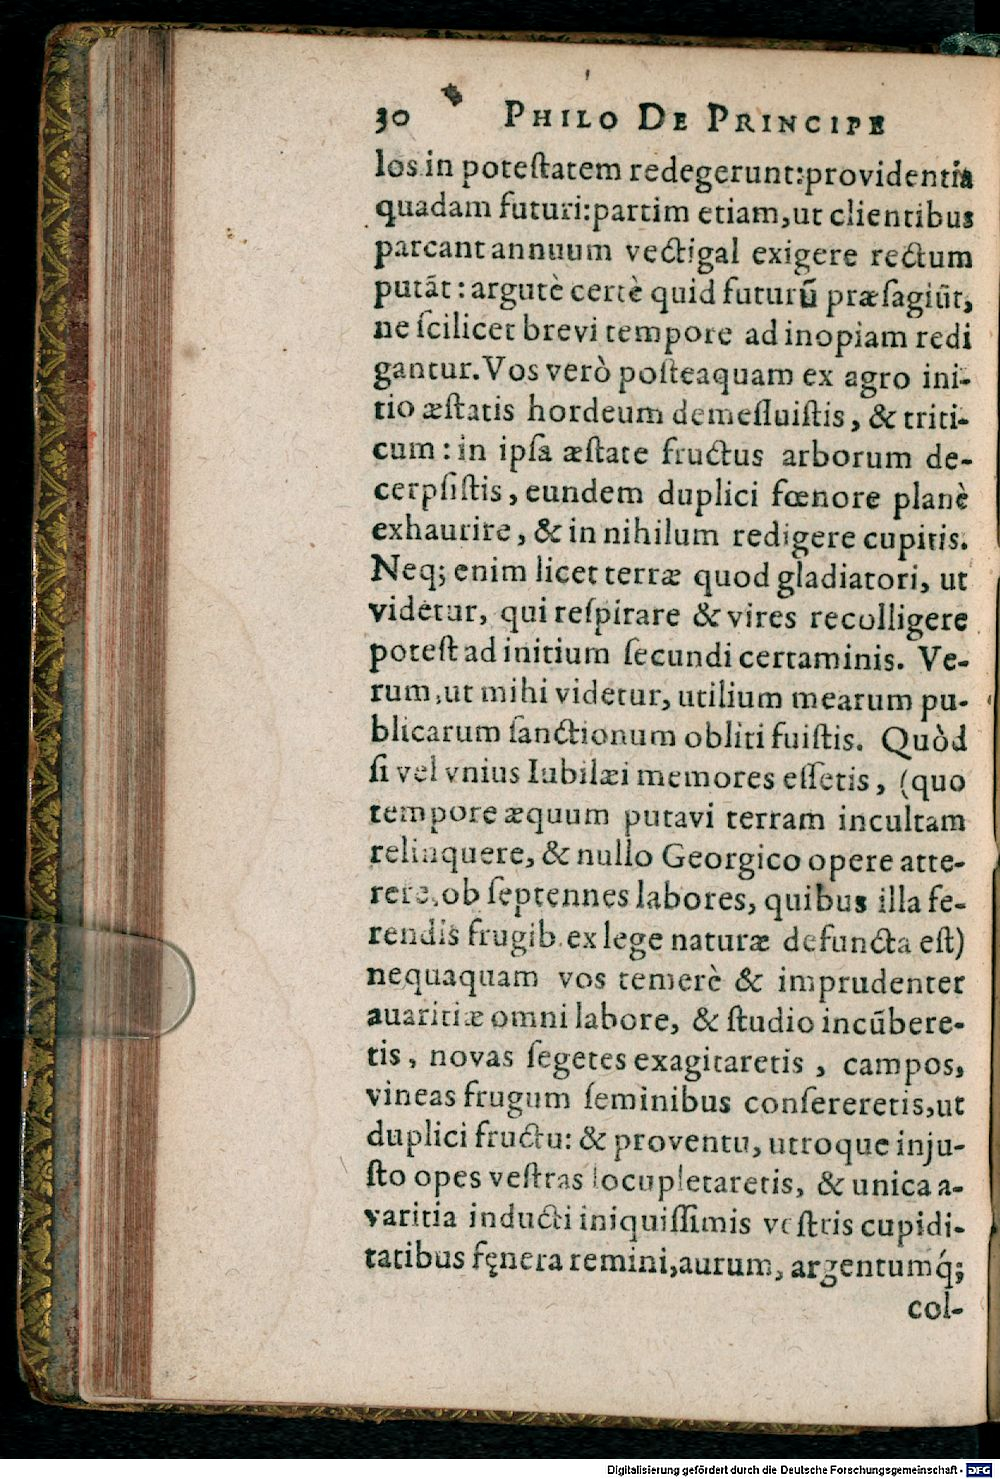 30 PHILO DE PRINCIPE
los in poteſtatem redegerunt:providentia
quadam futuri:partim etiam,ut clientibus
parcant annuum vectigal exigere rectum
putāt : argutè certè quid futurū præſagiūt,
ne ſcilicet brevi tempore ad inopiam redi
gantur. Vos verò poſteaquam ex agro ini-
tio æſtatis hordeum demeſſuiſtis, & triti-
cum : in ipſa æſtate fructus arborum de-
cerpſiſtis, eundem duplici fœnore planè
exhaurire, & in nihilum redigere cupitis.
Neq; enim licet terræ quod gladiatori, ut
videtur, qui reſpirare & vires recolligere
poteſt ad initium ſecundi certaminis. Ve-
rum,ut mihi videtur, utilium mearum pu-
blicarum ſanctionum obliti fuiſtis. Quòd
ſi vel vnius Iubilæi memores eſſetis, (quo
tempore æquum putavi terram incultam
relinquere, & nullo Georgico opere atte-
rere,ob ſeptennes labores, quibus illa fe-
rendis frugib. ex lege naturæ defuncta eſt)
nequaquam vos temerè & imprudenter
auaritiæ omni labore, & ſtudio incūbere-
tis, novas ſegetes exagitaretis, campos,
vineas frugum ſeminibus conſereretis,ut
duplici fructu: & proventu, utroque inju-
ſto opes veſtras locupletaretis, & unica a-
varitia inducti iniquiſſimis veſtris cupidi-
tatibus fęnera remini,aurum, argentumq́;
col-
Digitalisierung gefördert durch die Deutsche Forschungsgemeinschaft - DFG